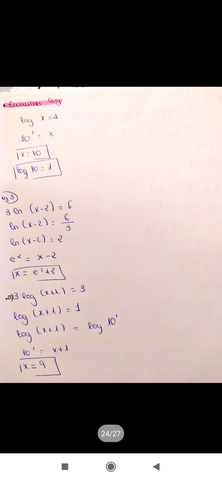 log x = 1
10¹ = x
x = 10
log 10 = 1
eg 3)
3 ln (x-2) = 6
ln (x-2) = 6/3
ln (x-2) = 2
e² = x-2
x = e²+2
3 log (x+1) = 3
log (x+1) = 1
log (x+1) = log 10¹
10¹ = x+1
x = 9
24/27